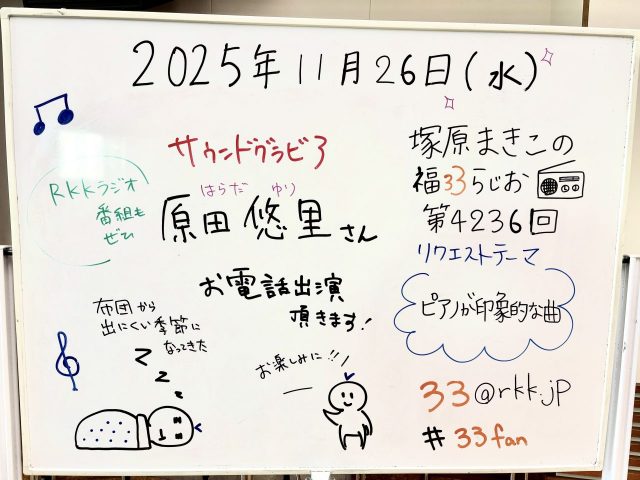 2025年11月26日(水)
サウンドグラビ3
RKKラジオ
番組も
ぜひ
はらだ ゆり
原田 悠里さん
お電話出演
頂きます!
布団から
出にくい季節に
なってきた
zzz
お楽しみに!!
塚原まきこの
福33らじお
第4236回
リクエストテーマ
ピアノが印象的な曲
33@rkk.jp
#33fan